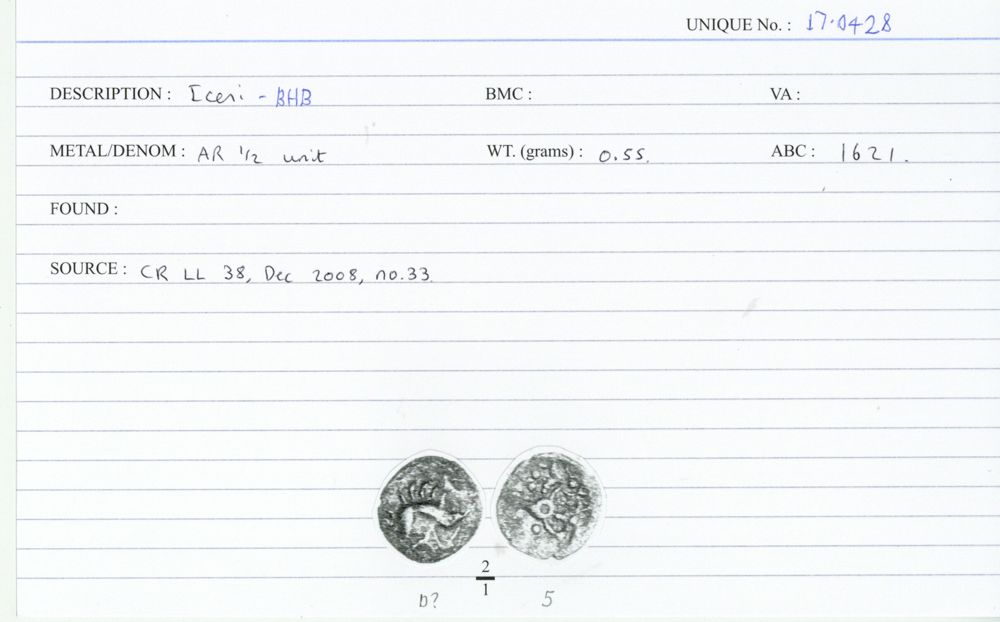 UNIQUE No. : 17.0428
DESCRIPTION : Iceni - BHB BMC : VA :
METAL/DENOM : AR 1/2 unit WT. (grams) : 0.55. ABC : 1621.
FOUND :
SOURCE : CR LL 38, Dec 2008, no.33.
2
1
b? 5